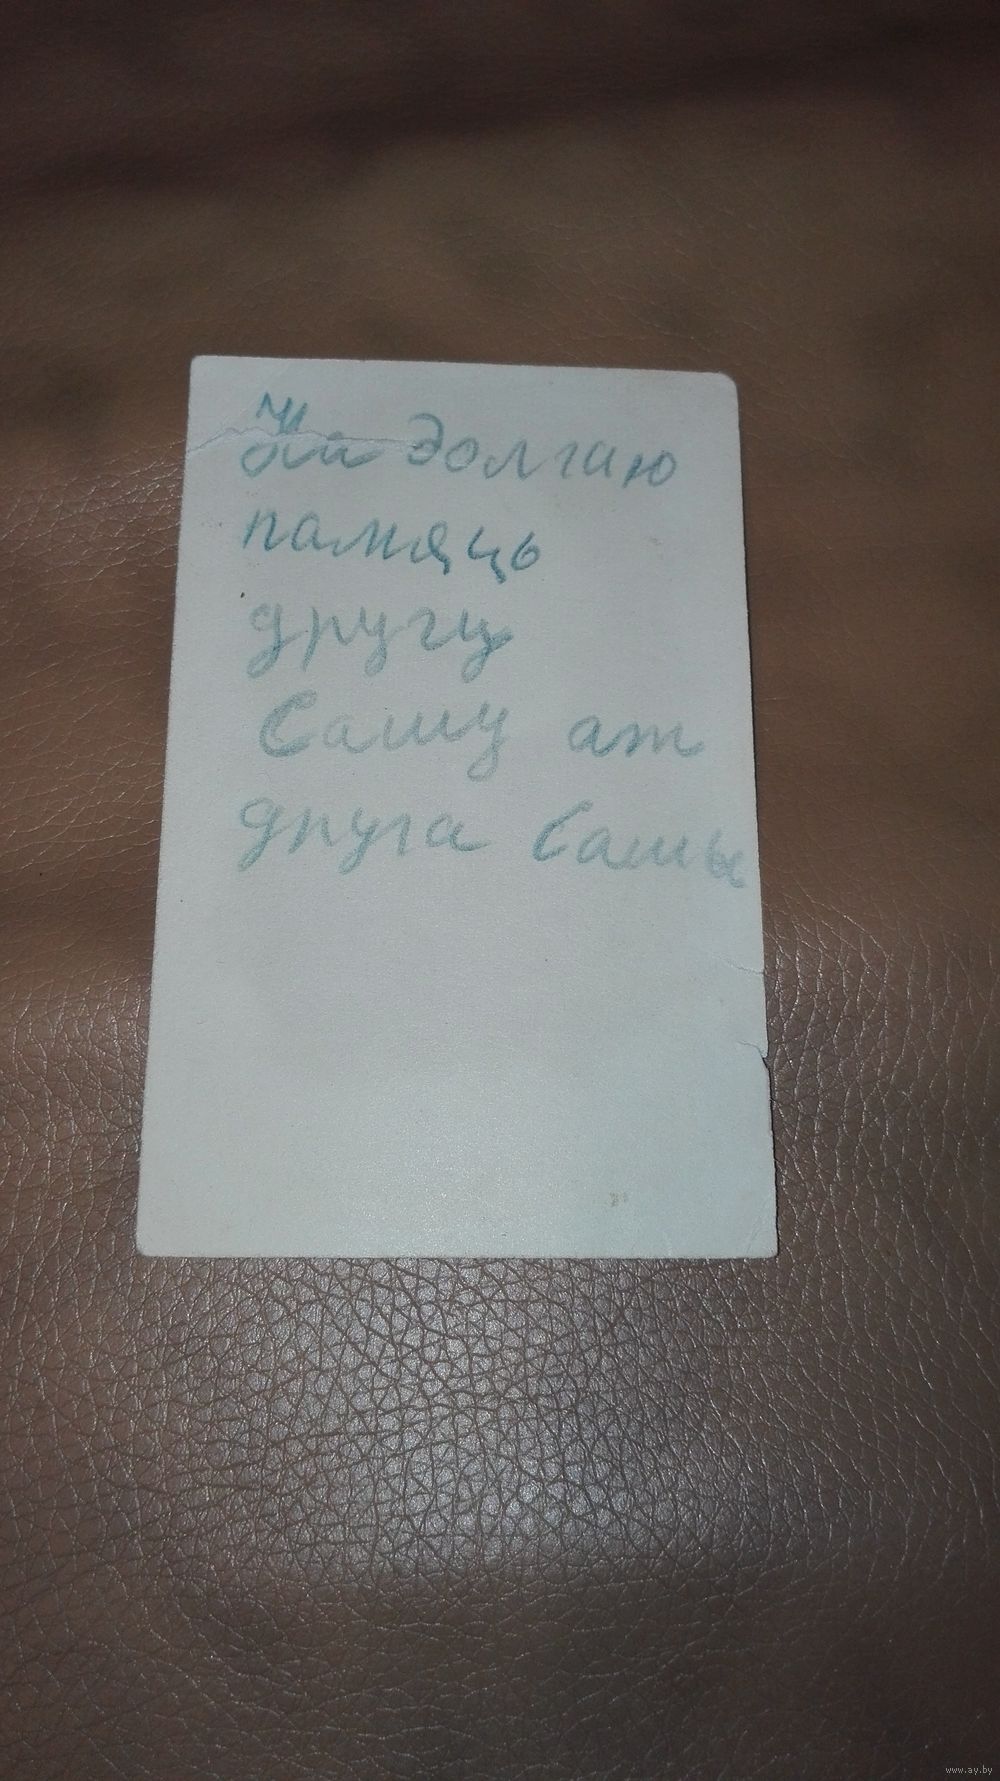 На долгаю
памяць
другу
Сашу ат
друга Сашы
www.ay.by